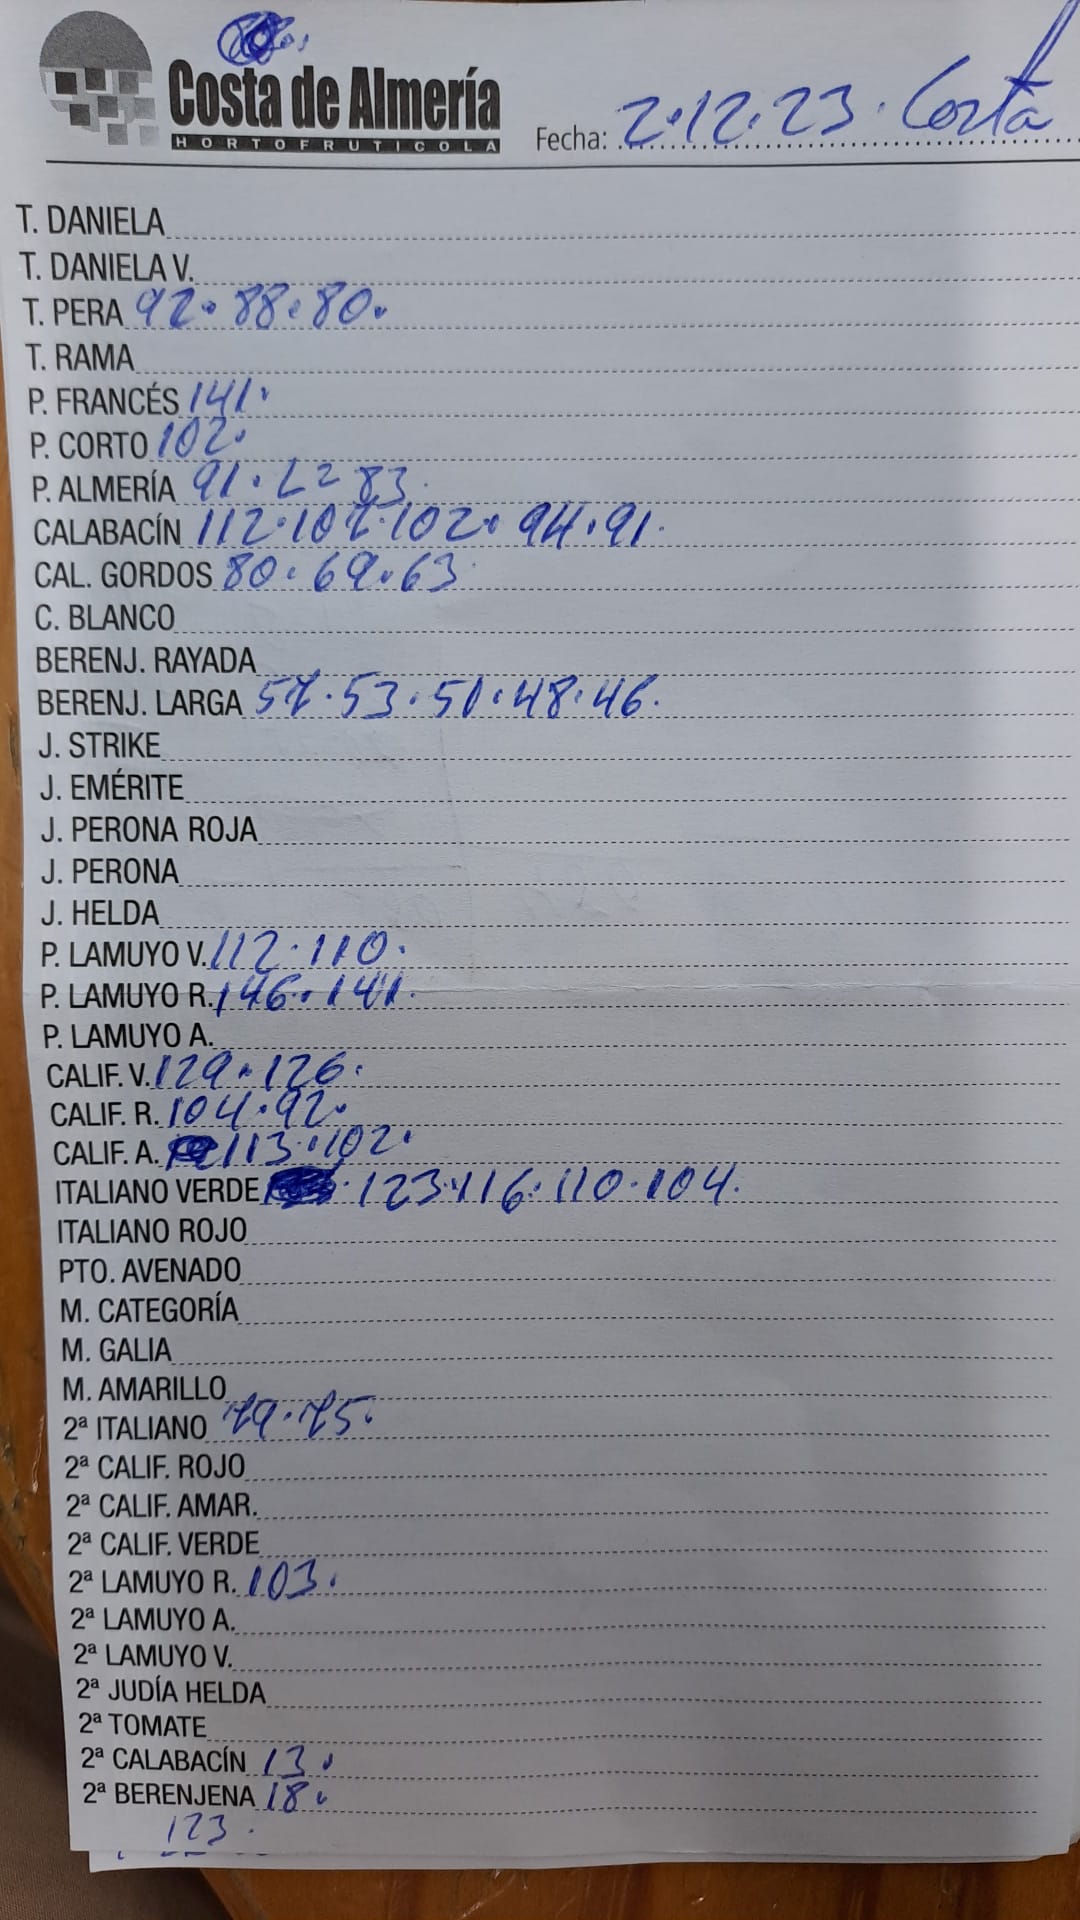 Costa de Almería
HORTOFRUTICOLA
Fecha: 2.12.23. Costa
T. DANIELA
T. DANIELA V.
T. PERA 92. 88. 80.
T. RAMA
P. FRANCÉS 141.
P. CORTO 102.
P. ALMERÍA 91. L2 83.
CALABACÍN 112. 107. 102. 94. 91.
CAL. GORDOS 80. 69. 63.
C. BLANCO
BERENJ. RAYADA
BERENJ. LARGA 57. 53. 51. 48. 46.
J. STRIKE
J. EMÉRITE
J. PERONA ROJA
J. PERONA
J. HELDA
P. LAMUYO V. 112. 110.
P. LAMUYO R. 146. 141.
P. LAMUYO A.
CALIF. V. 129. 126.
CALIF. R. 104. 92.
CALIF. A. 113. 102.
ITALIANO VERDE 123. 116. 110. 104.
ITALIANO ROJO
PTO. AVENADO
M. CATEGORÍA
M. GALIA
M. AMARILLO
2ª ITALIANO 79. 75.
2ª CALIF. ROJO
2ª CALIF. AMAR.
2ª CALIF. VERDE
2ª LAMUYO R. 103.
2ª LAMUYO A.
2ª LAMUYO V.
2ª JUDÍA HELDA
2ª TOMATE
2ª CALABACÍN 13.
2ª BERENJENA 18.
123.